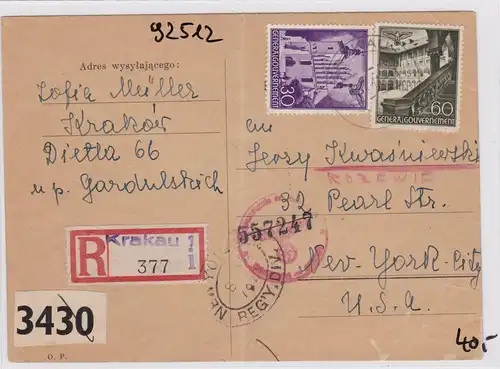 92512
Adres wysyłającego:
Zofia Müller
Kraków
Dietla 66
u p. Gardulskich
GENERALGOUVERNEMENT
30
60
GENERALGOUVERNEMENT
Jerzy Kwaśniewski
ROZEWIE
32 Pearl Str.
New-York-City
U.S.A.
557247
R
Krakau 1
1
377
REG'Y. DIV.
3430
40.-
O. P.